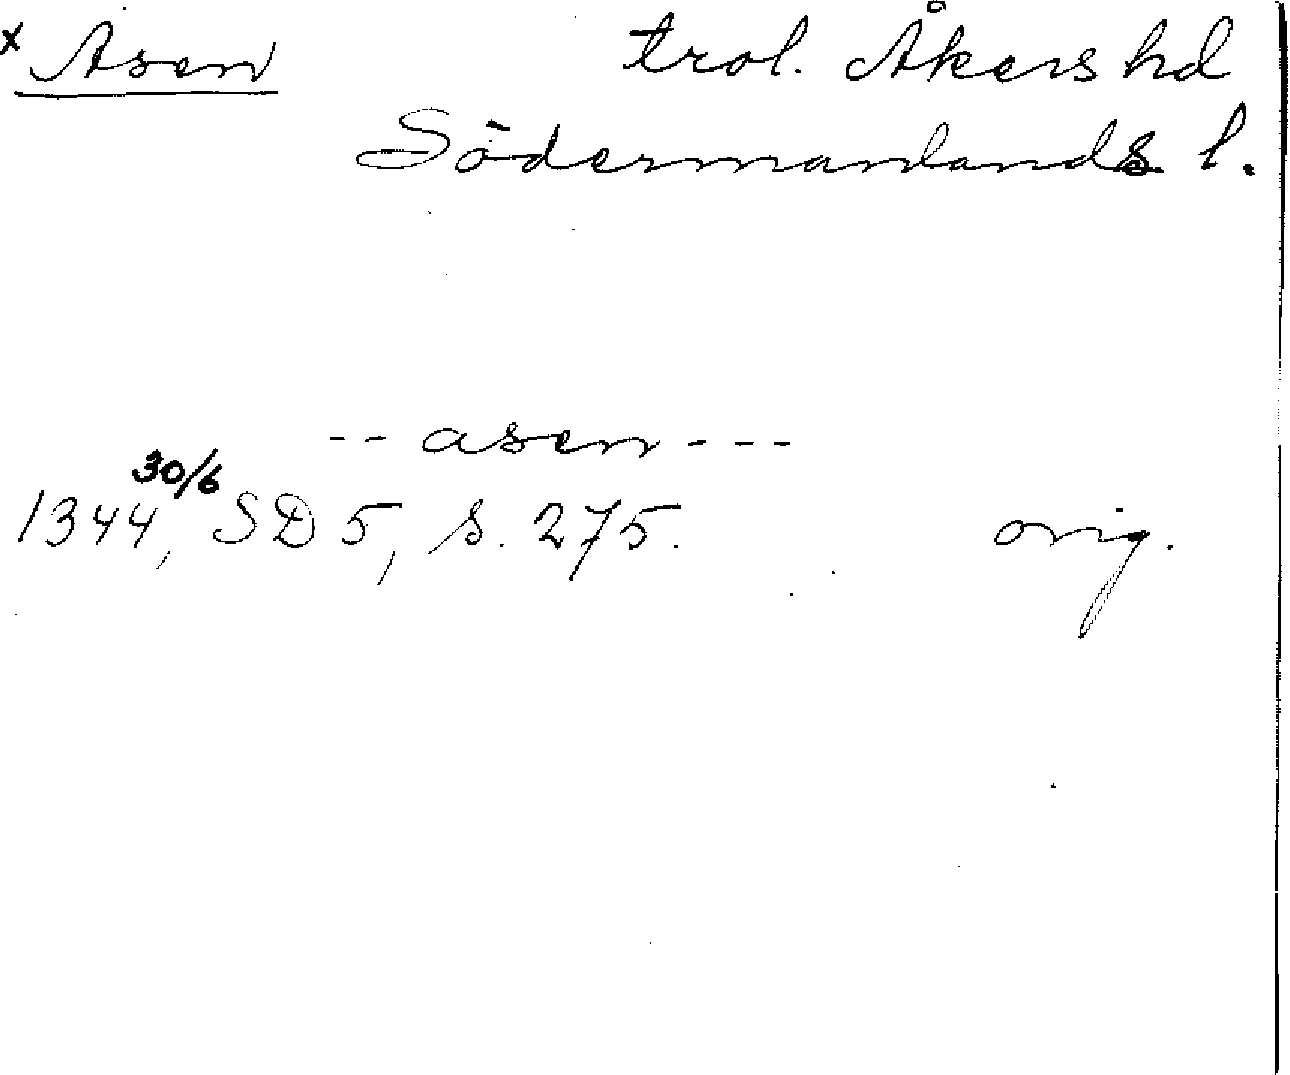 x Asen trol. Åkers hd
Södermanlands l.
-- asen ---
1344 30/6, SD 5, s. 275. orig.